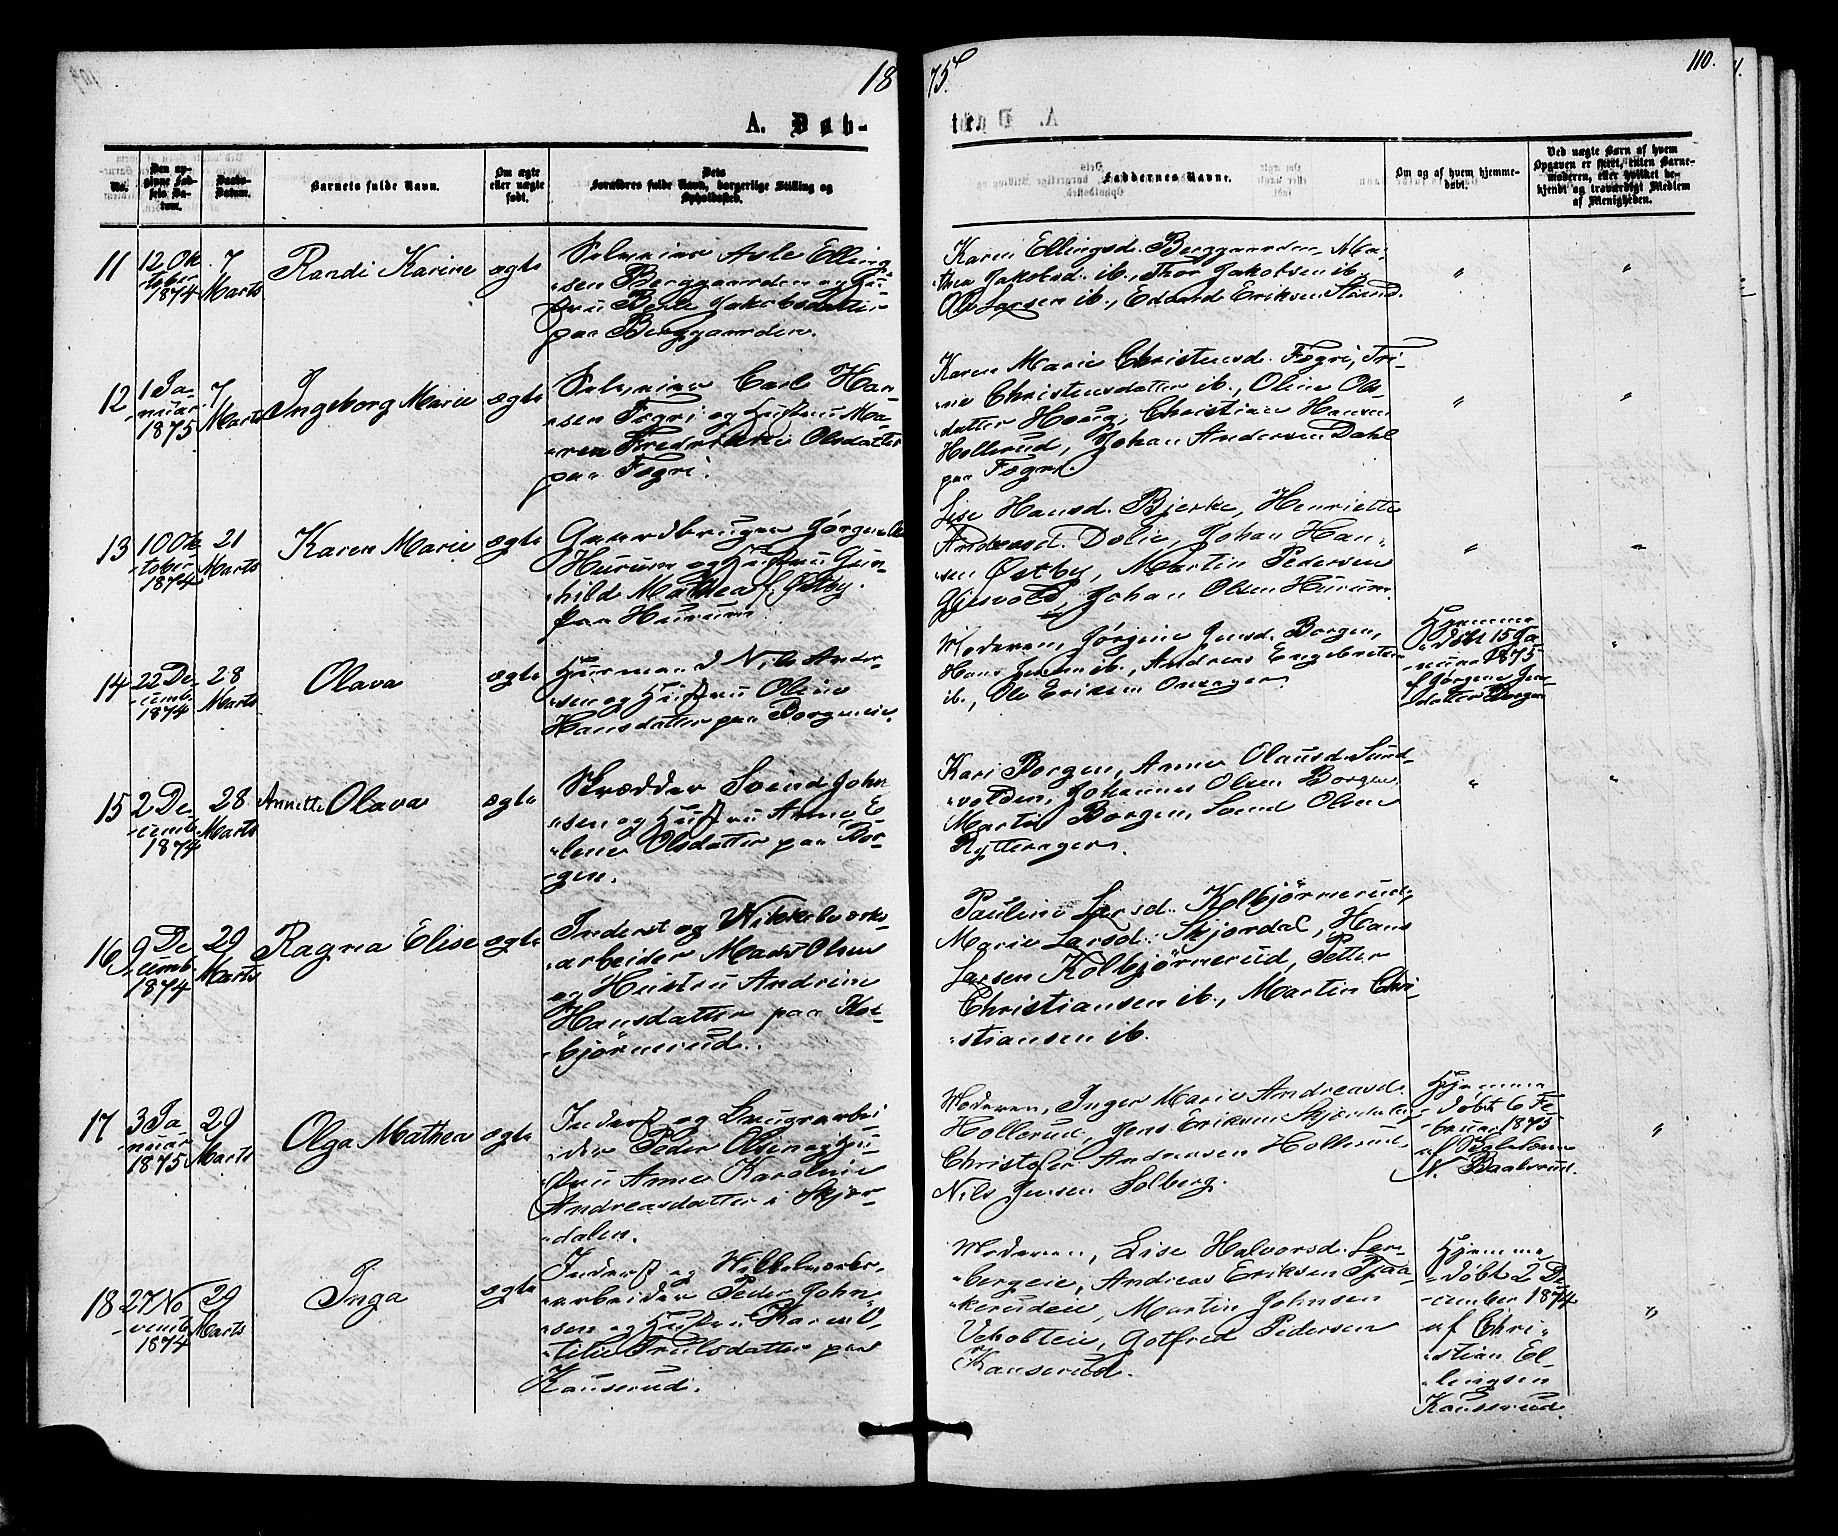 1875.
110.
A. Døbte.
No.
Den opgivne Fødsels Datum.
Daabs-Datum.
Barnets fulde Navn.
Om ægte eller uægte født.
Dets Forældres fulde Navn, borgerlige Stilling og Opholdssted.
Faddernes Navne.
Om og af hvem hjemmedøbt.
Ved uægte Børn af hvem Opgaven er skeet, enten Barnemoderen, eller hvilket bekjendt og troværdigt Medlem af Menigheden.
11
12 Ok-
-tober
1874
7
Marts
Randi Karine
ægte
Selveier Asle Elling-
-sen Berggaarden og Hu-
stru Berte Jakobsdatter
paa Berggaarden.
Karen Ellingsd. Berggaarden, Ma-
-thea Jakobsd. ib., Thor Jakobsen ib.,
Ole Larsen ib., Edvard Eriksen Strand.
"
"
12
1 Ja-
-nuar
1875
7
Marts
Ingeborg Marie
ægte
Selveier Carl Han-
-sen Fegri og Hustru Ma-
-ren Fredrikke Olsdatter
paa Fegri.
Karen Marie Christensd. Fegri, Tri-
-ne Christensdatter ib., Oline Ols-
-datter Houg, Christian Hansen
Hollerud, Johan Andersen Dahl
paa Fegri.
"
"
13
10 Ok-
-tober
1874
21
Marts
Karen Marie
ægte
Gaardbruger Jørgen Ols.
Hurum og Hustru Gun-
-hild Mathea f. Østby
paa Hurum.
Lise Hansd. Bjerke, Henriette
Andreasd. Dolie, Johan Han-
-sen Østby, Martin Pedersen
Gjesvold, Johan Olsen Hurum.
"
"
14
22 De-
-cemb.
1874
28
Marts
Olava
ægte
Huusmand Nils Ander-
-sen og Hustru Oline
Hansdatter paa Borgeneie.
Moderen, Jørgine Jensd. Borgen,
Hans Jensen ib., Andreas Engebretsen
ib., Ole Eriksen Onsager.
Hjemme-
-døbt 15 Ja-
-nuar 1875
af Jørgine Jens-
-datter Borgen
"
15
2 De-
-cemb.
1874
28
Marts
Annette Olava
ægte
Skrædder Svend John-
-sen og Hustru Anne E-
-lene Olsdatter paa Bor-
-gen.
Kari Borgen, Anne Olausd. Sund-
-volden, Johannes Olsen Borgen,
Martin Borgen, Svend Olsen
Rytterager.
"
"
16
9 De-
-cemb.
1874
29
Marts
Ragna Elise
ægte
Inderst og Nikkelværks-
-arbeider Mads Olsen
og Hustru Andrine
Hansdatter paa Kol-
-bjørnerud.
Pauline Larsd. Kolbjørnerud,
Marie Larsd. Skjørdal, Hans
Larsen Kolbjørnerud, Petter
Christiansen ib., Martin Chri-
-stiansen ib.
17
3 Ja-
-nuar
1875
29
Marts
Olga Mathea
ægte
Inderst og Brugsarbei-
-der Peder Olsen og Hu-
stru Anne Karoline
Andreasdatter i Skjør-
-dalen.
Moderen, Inger Marie Andreasd.
Hollerud, Jens Eriksen Skjørdalen,
Christofer Andreasen Hollerud,
Nils Jensen Solberg.
Hjemme-
-døbt 6 Fe-
-bruar 1875
af
N. Baalsrud.
"
18
27 No-
-vemb.
1874
29
Marts
Inga
ægte
Inderst og Nikkelværks-
-arbeider Peder John-
-sen og Hustru Karen O-
-tilie Trulsdatter paa
Kauserud.
Moderen, Lise Halvorsd. Ler-
-bergeie, Andreas Eriksen Braa-
-kerudeie, Martin Johnsen
Veholteie, Gotfred Pedersen
Kauserud.
Hjemme-
-døbt 2 De-
-cember 1874
af Chri-
-stian El-
-lingsen
Kauserud.
"